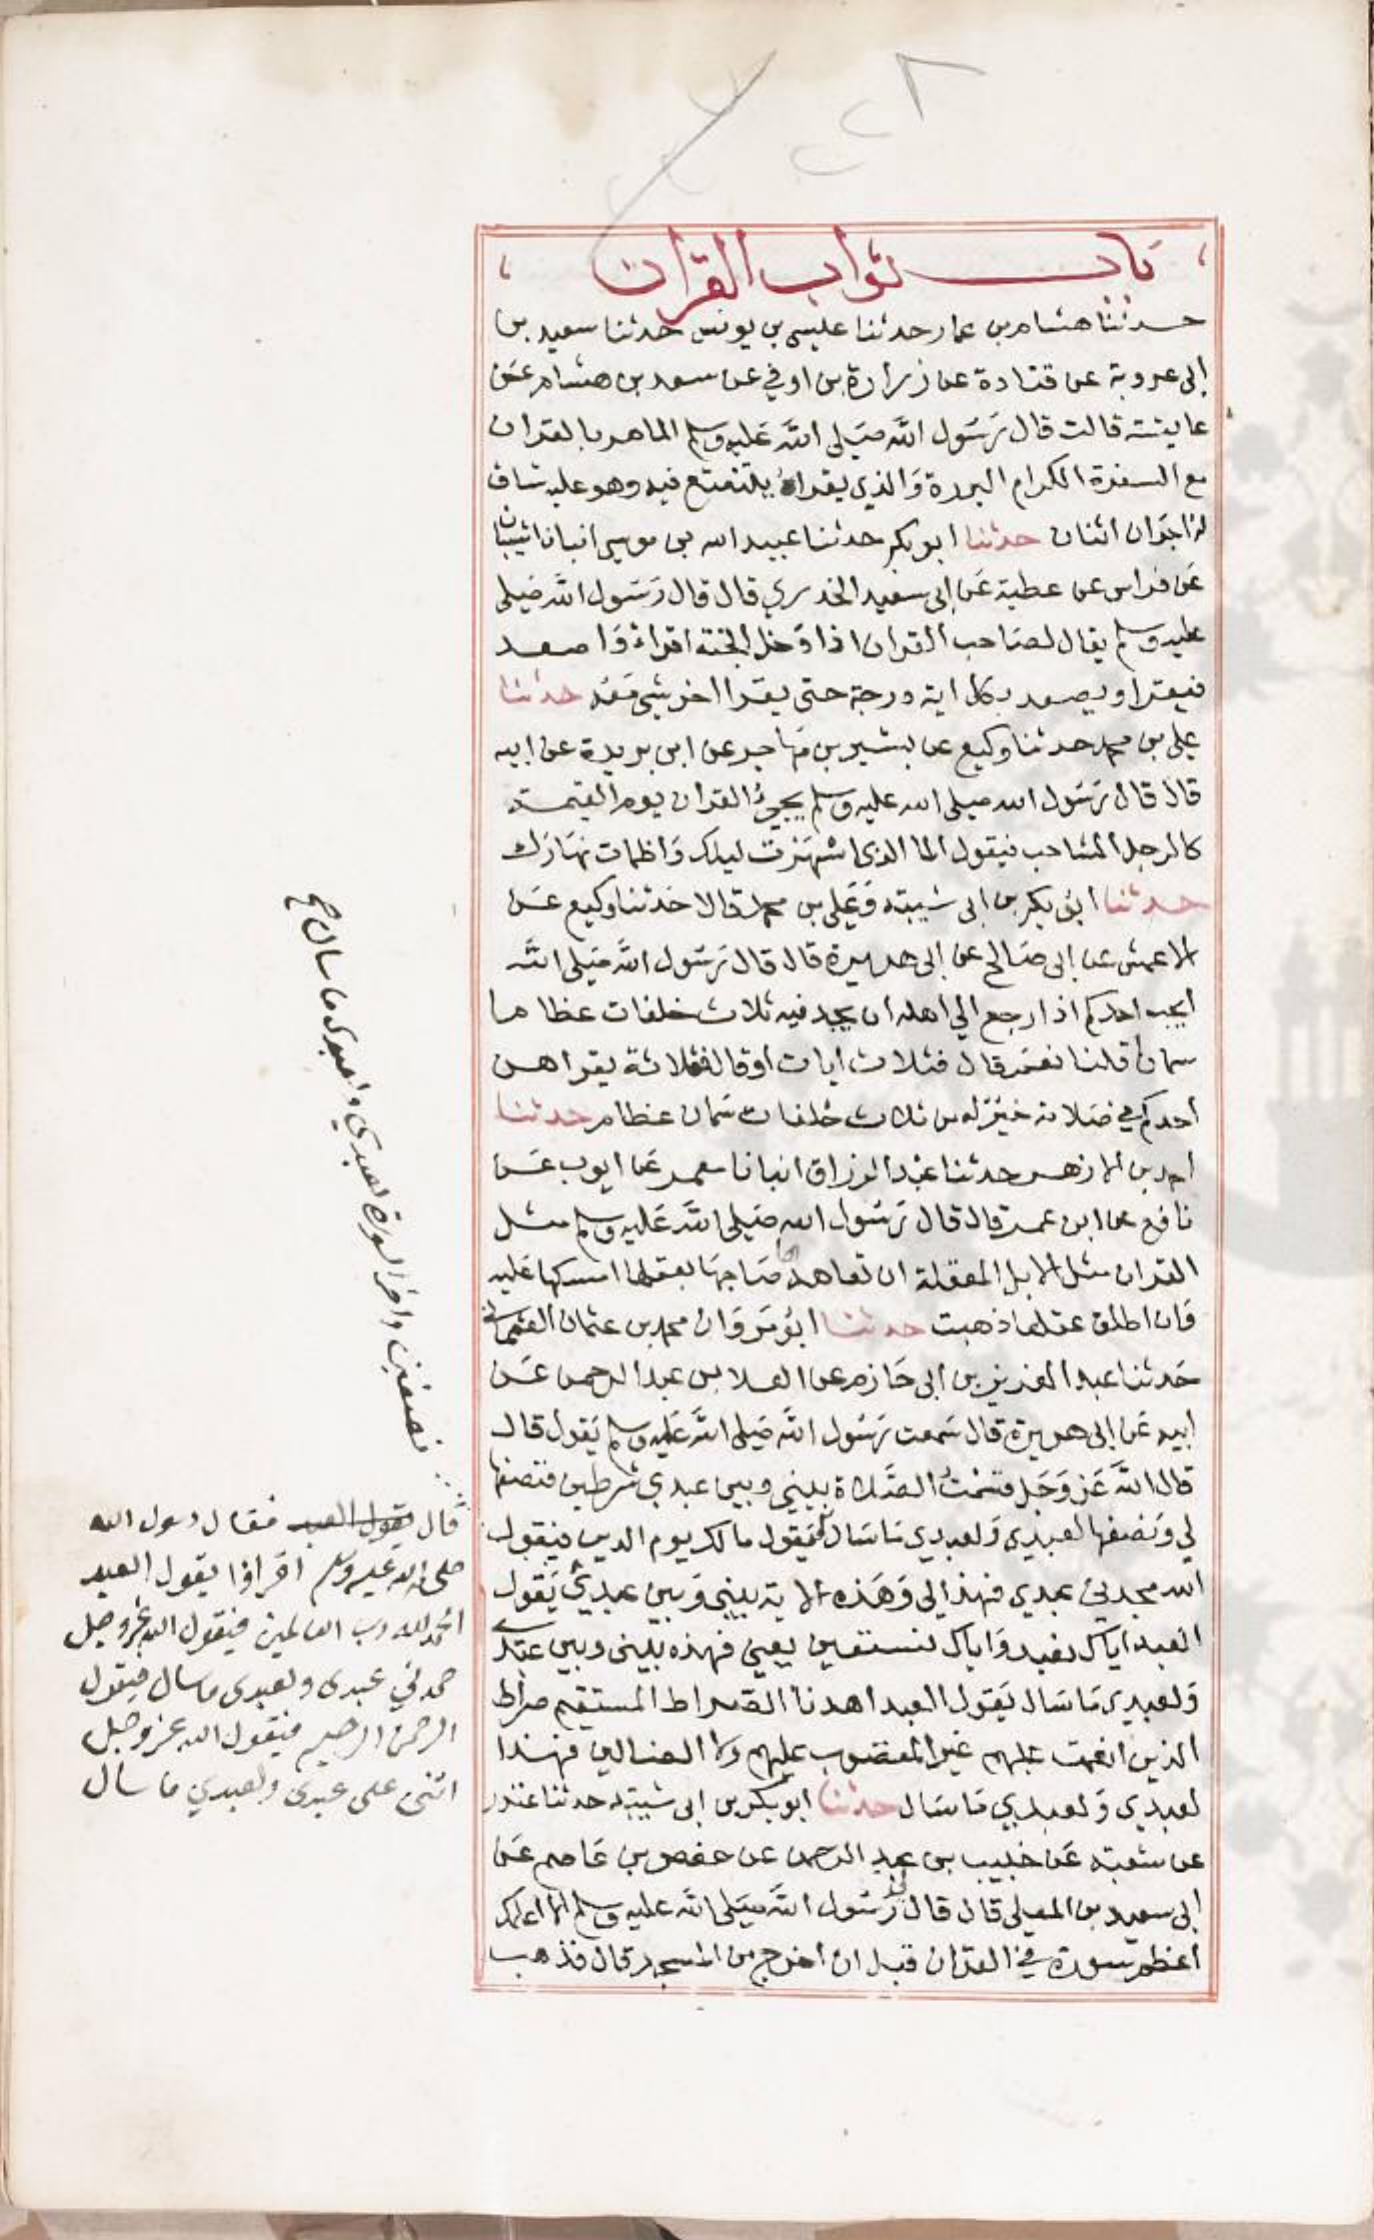 باب ثواب القرآن
حدثنا هشام بن عمار حدثنا عيسى بن يونس حدثنا سعيد بن
ابي عروبة عن قتادة عن زرارة بن اوفي عن سعد بن هشام عن
عايشة قالت قال رسول الله صلى الله عليه وسلم الماهر بالقران
مع السفرة الكرام البررة والذي يقراه يتتعتع فيه وهو عليه شاق
له اجران اثنان حدثنا ابو بكر حدثنا عبيد الله بن موسى انبانا شيبان
عن فراس عن عطية عن ابي سعيد الخدري قال قال رسول الله صلى
عليه وسلم يقال لصاحب القران اذا دخل الجنة اقراء واصعد
فيقرا ويصعد بكل اية درجة حتى يقرا اخر شيى معه حدثنا
علي بن محمد حدثنا وكيع عن بشير بن مهاجر عن ابن بريدة عن ابيه
قال قال رسول الله صلى الله عليه وسلم يجيئ القران يوم القيمة
كالرجل الشاحب فيقول انا الذى اسهرت ليلك واظمات نهارك
حدثنا ابو بكر بن ابى شيبة وعلي بن محمد قالا حدثنا وكيع عن
الاعمش عن ابى صالح عن ابى هريرة قال قال رسول الله صلى الله
ايحب احدكم اذا رجع الي اهله ان يجد فيه ثلاث خلفات عظاما
سمان قلنا نعم قال فثلاث ايات اوقال فثلاثة يقراهن
احدكم في صلاته خير له من ثلاث خلفات سمان عظام حدثنا
احمد بن الازهر حدثنا عبد الرزاق انبانا معمر عن ايوب عن
نافع عن ابن عمر قال قال رسول الله صلى الله عليه وسلم مثل
القران مثل الابل المعقلة ان تعاهدها صاحبها بعقلها امسكها عليه
وان اطلق عقلها ذهبت حدثنا ابو مروان محمد بن عثمان العثماني
حدثنا عبد العزيز بن ابى حازم عن العلا بن عبد الرحمن عن
ابيه عن ابى هريرة قال سمعت رسول الله صلى الله عليه وسلم يقول قال
قال الله عز وجل قسمت الصلاة بيني وبين عبدي شطرين فنصفها
لي ونصفها لعبدي ولعبدي ما سال فيقول مالك يوم الدين فيقول
الله مجدني عبدي فهذا لي وهذه الاية بيني وبين عبدي يقول
العبد اياك نعبد واياك نستعين يعني فهذه بيني وبين عبدي
ولعبدي ما سال يقول العبد اهدنا الصراط المستقيم صراط
الذين انعمت عليهم غير المغضوب عليهم ولا الضالين فهذا
لعبدي ولعبدي ما سال حدثنا ابو بكر بن ابى شيبة حدثنا غندر
عن شعبة عن خبيب بن عبد الرحمن عن حفص بن عاصم عن
ابى سعيد بن المعلى قال قال لي رسول الله صلى الله عليه وسلم الا اعلمك
اعظم سورة في القران قبل ان اخرج من المسجد قال فذهب
نصفين واخر السورة لعبدي ولعبدى ما سال صح
قال يقول العبد فقال رسول الله
صلى الله عليه وسلم اقراوا يقول العبد
الحمد لله رب العالمين فيقول الله عز وجل
حمدني عبدى ولعبدى ما سال فيقول
الرحمن الرحيم فيقول الله عز وجل
اثنى على عبدى ولعبدي ما سال